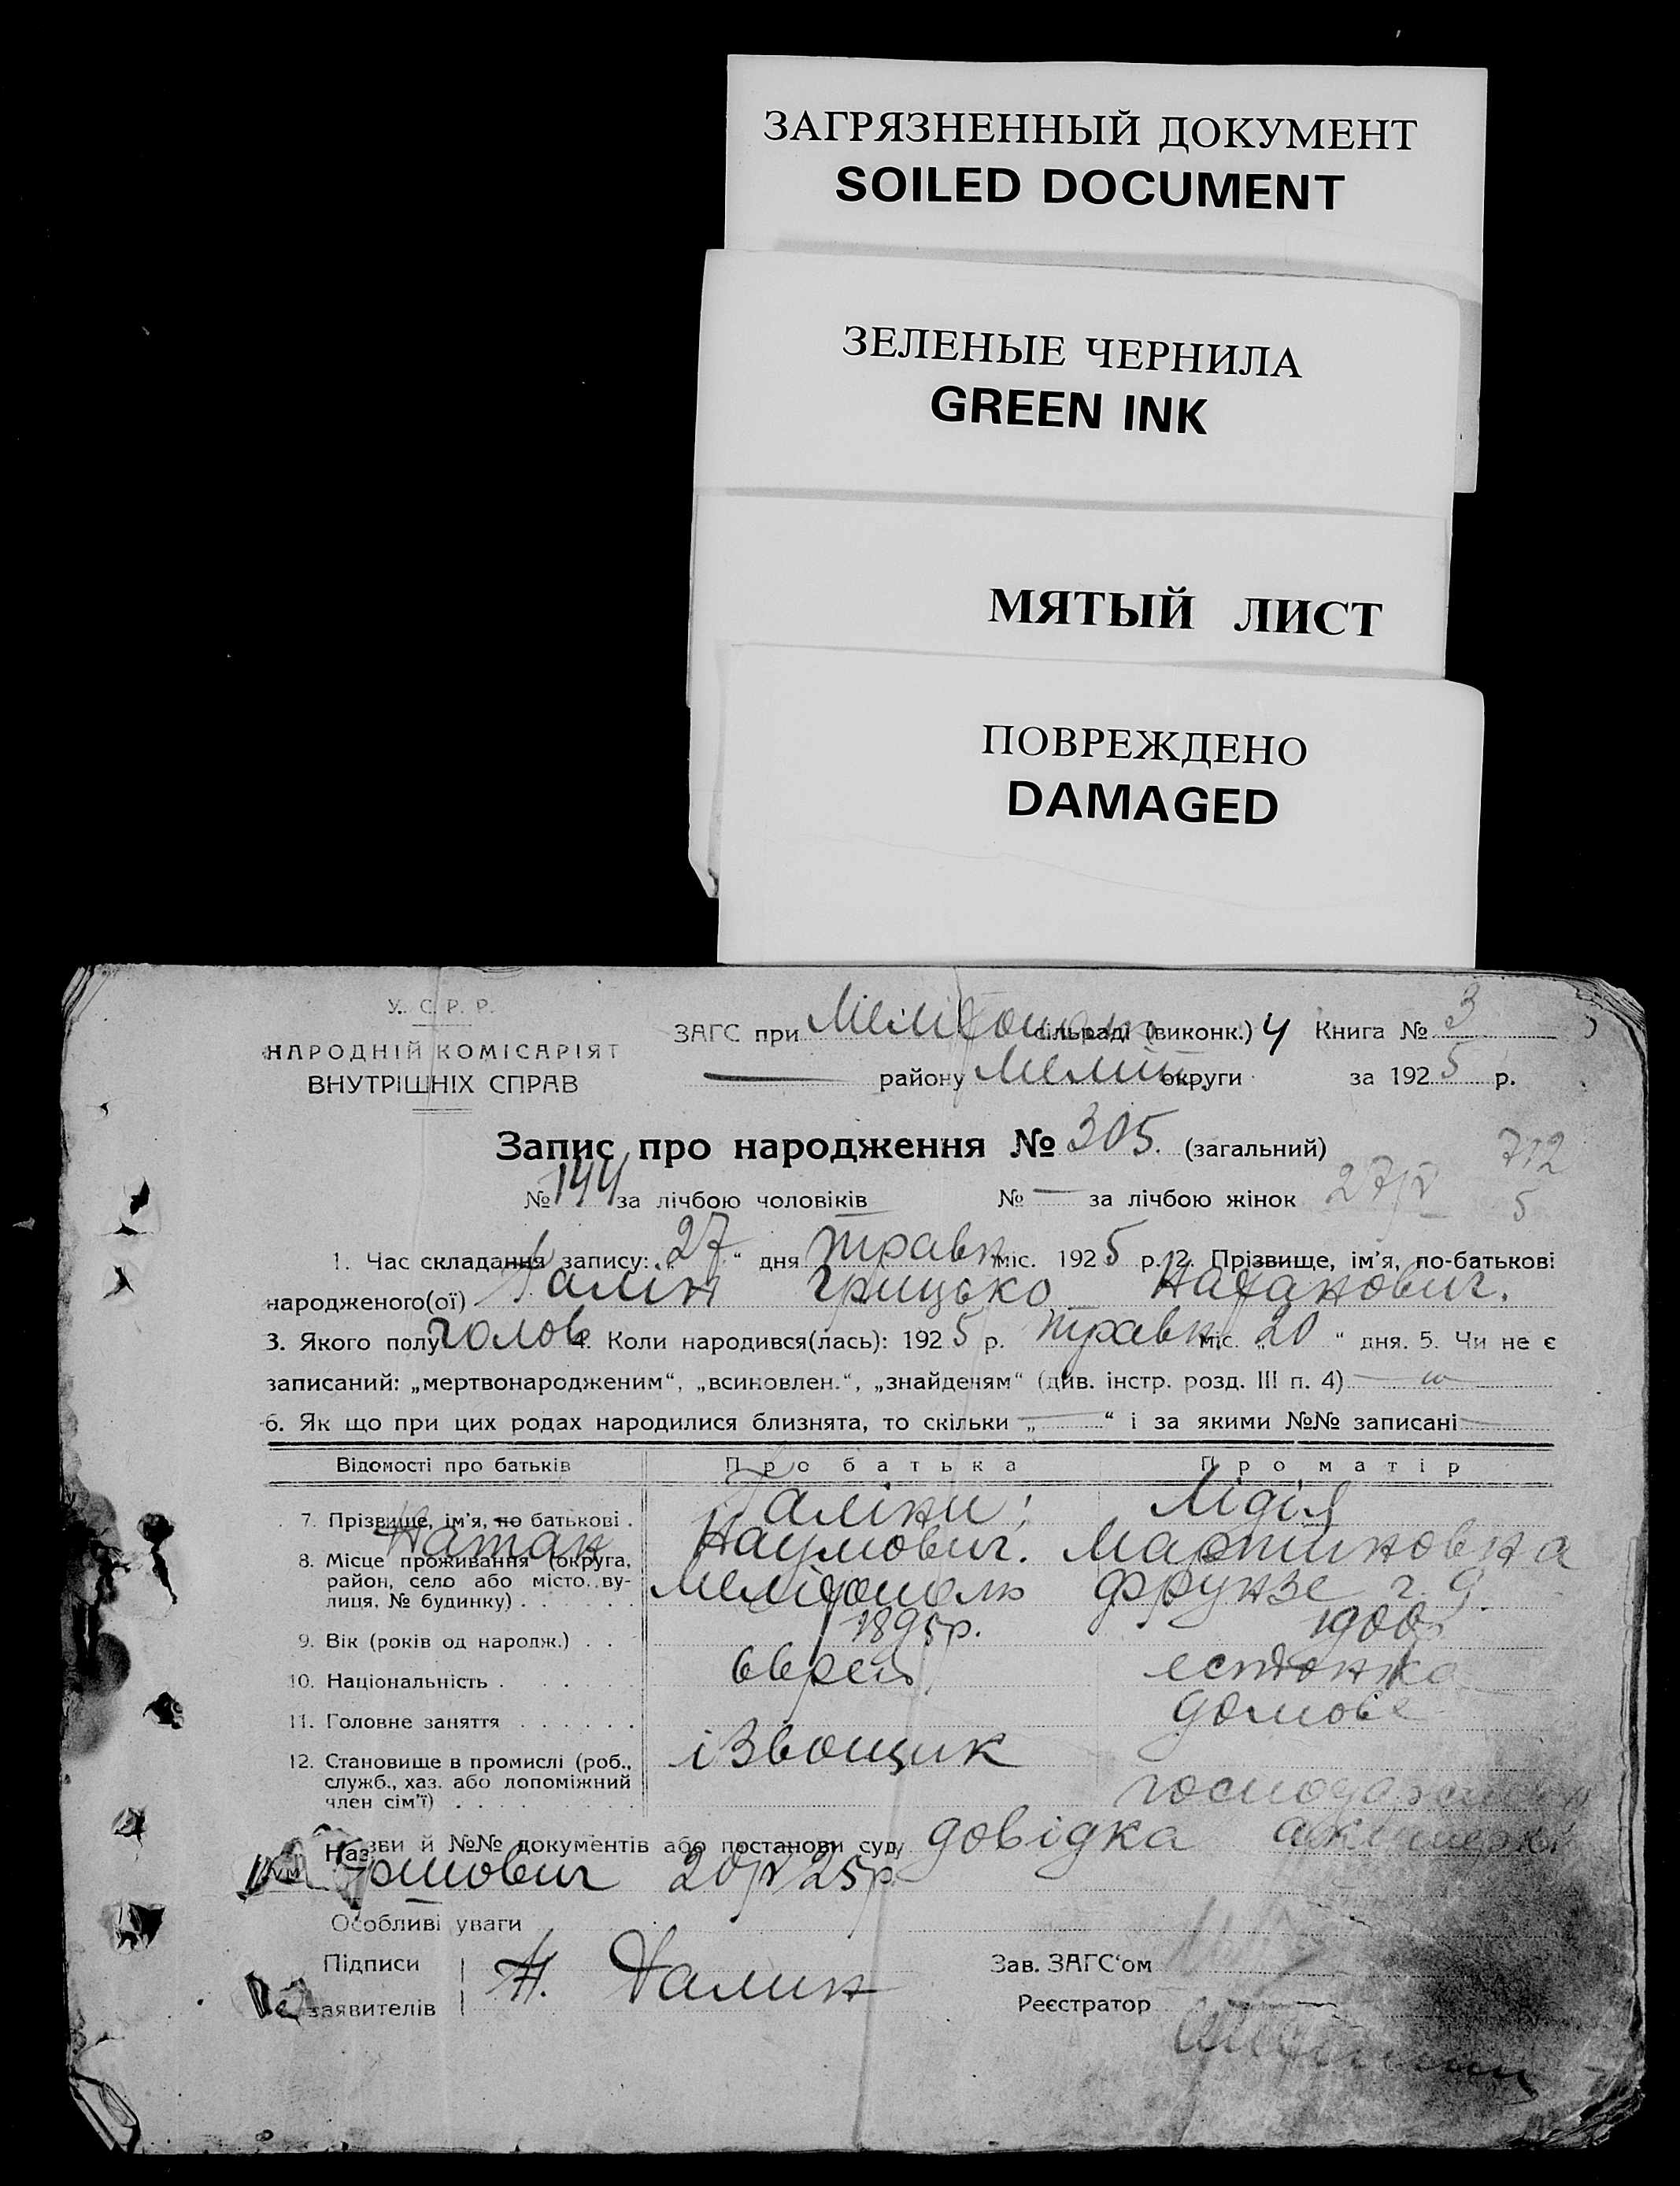 ЗАГРЯЗНЕННЫЙ ДОКУМЕНТ
SOILED DOCUMENT
ЗЕЛЕНЫЕ ЧЕРНИЛА
GREEN INK
МЯТЫЙ ЛИСТ
ПОВРЕЖДЕНО
DAMAGED
У. С. Р. Р.
НАРОДНІЙ КОМІСАРІЯТ
ВНУТРІШНІХ СПРАВ
ЗАГС при сільраді (виконк.) Книга № 3
району Меліт. округи за 1925 р.
Запис про народження № 305. (загальний)
712
№ 144 за лічбою чоловіків № — за лічбою жінок 27/V 5
1. Час складання запису: „27“ дня травн міс. 1925 р. 2. Прізвище, ім’я, по-батькові
народженого(ої) Галін Грицько Натанович.
3. Якого полу голов 4. Коли народився(лась): 1925 р. травн міс. „20“ дня. 5. Чи не є
записаний: „мертвонародженим“, „всиновлен.“, „знайденям“ (див. інстр. розд. III п. 4)
6. Як що при цих родах народилися близнята, то скільки „—“ і за якими №№ записані —
Відомості про батьків Про батька Про матір
7. Прізвище, ім’я, по батькові . Галіни; Лідія
Натан Наумович. Мартиновна
8. Місце проживання (округа, район, село або місто, вулиця, № будинку) . Мелітополь Фрунзе ч. 9.
9. Вік (років од народж.) . . 1895р. 1900р
10. Національність . еврей естонка
11. Головне заняття . . . . . . домове
12. Становище в промислі (роб., служб., хаз. або допоміжний член сім’ї) . ізвощик
господарство
Назви й №№ документів або постанови суду довідка акушерки
20/V 25р.
Особливі уваги
Підписи Н. Галин Зав. ЗАГС‘ом
заявителів Реєстратор